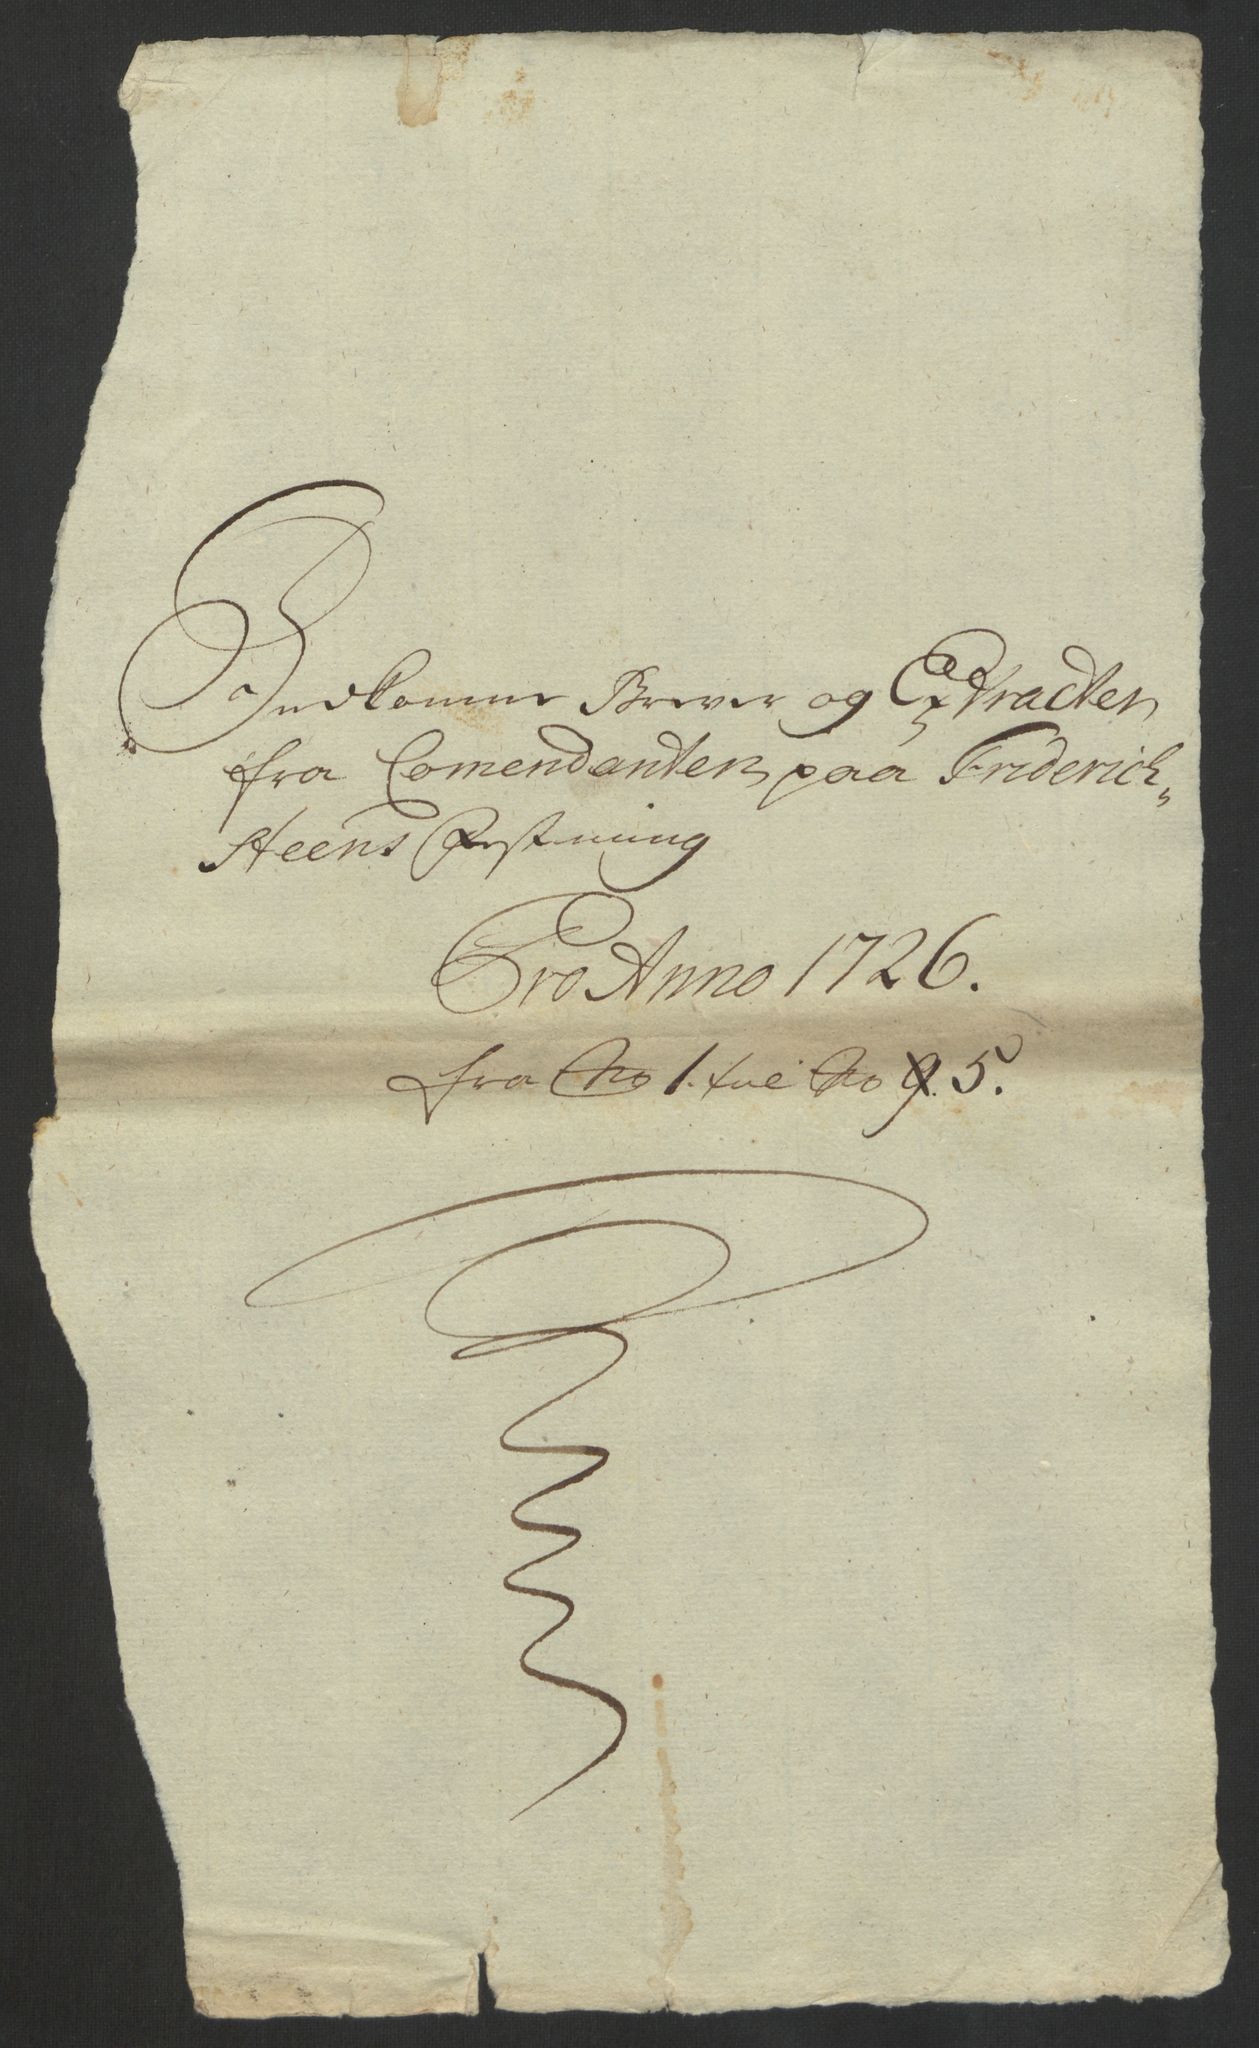 Indkomne Brever og Extracter
fra Comendanten paa Friderich„
Steens Festning
Pro Anno 1726.
fra No 1. til No 9. 5.